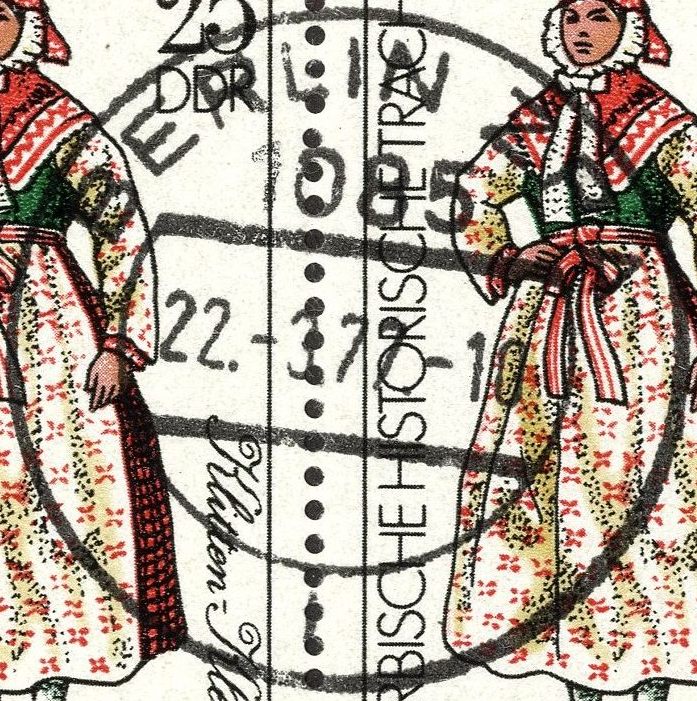 25
DDR
BERLIN
1085
22.-3.7
-10
Klitten-
RBISCHE HISTORISCHE TRACH